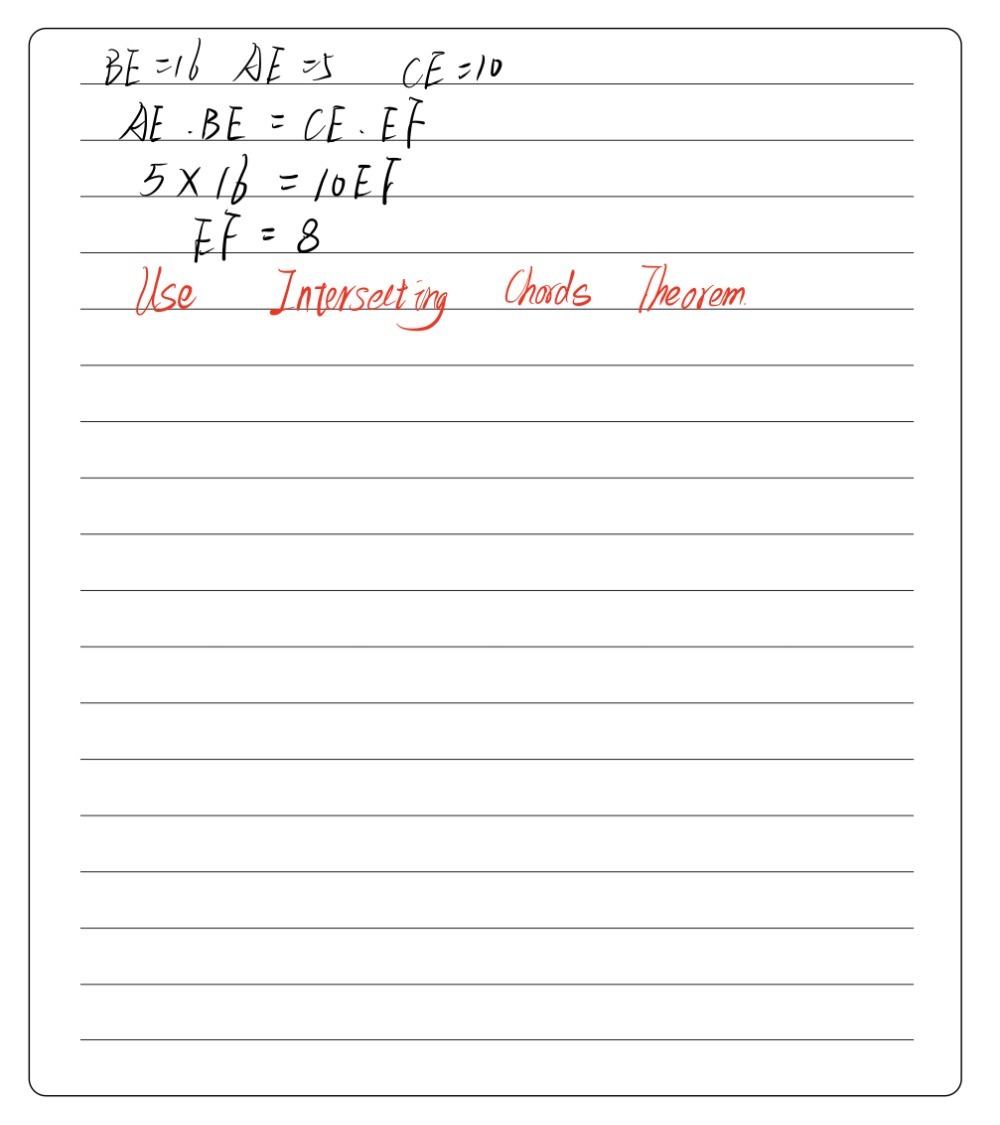 BE=16 AE=5 CE=10
AE . BE = CE . EF
5 × 16 = 10EF
EF = 8
Use Intersecting Chords Theorem.